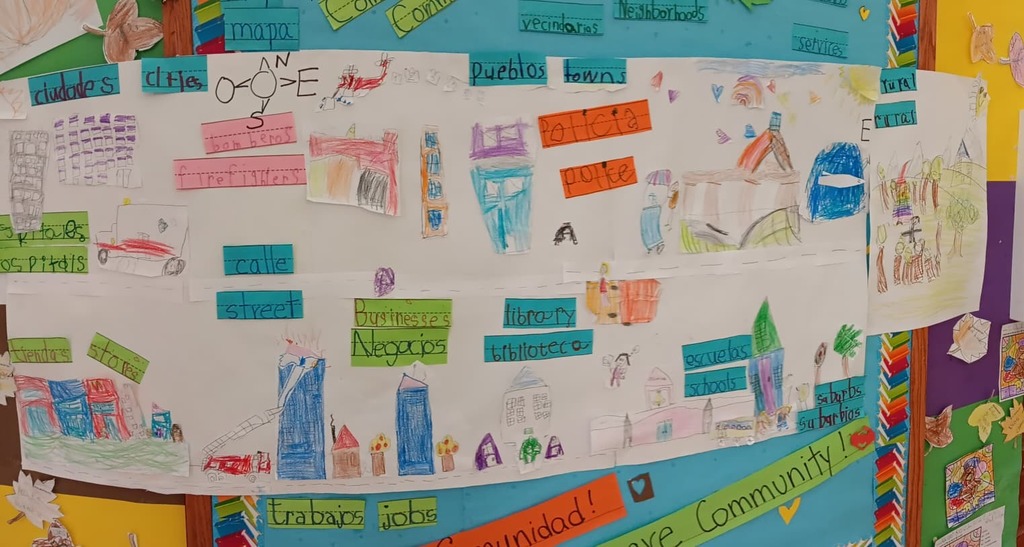 mapa
vecindarios
Neighborhoods
services
ciudades
cities
N
O
E
S
pueblos
towns
rural
rural
bomberos
firefighters
policia
police
E
ospitals
calle
street
Businesses
Negocios
library
biblioteca
tiendas
stores
escuelas
schools
suburbs
suburbios
trabajos
jobs
Community!